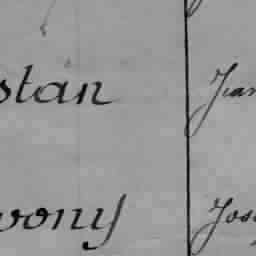 stán Jean
vony Jos